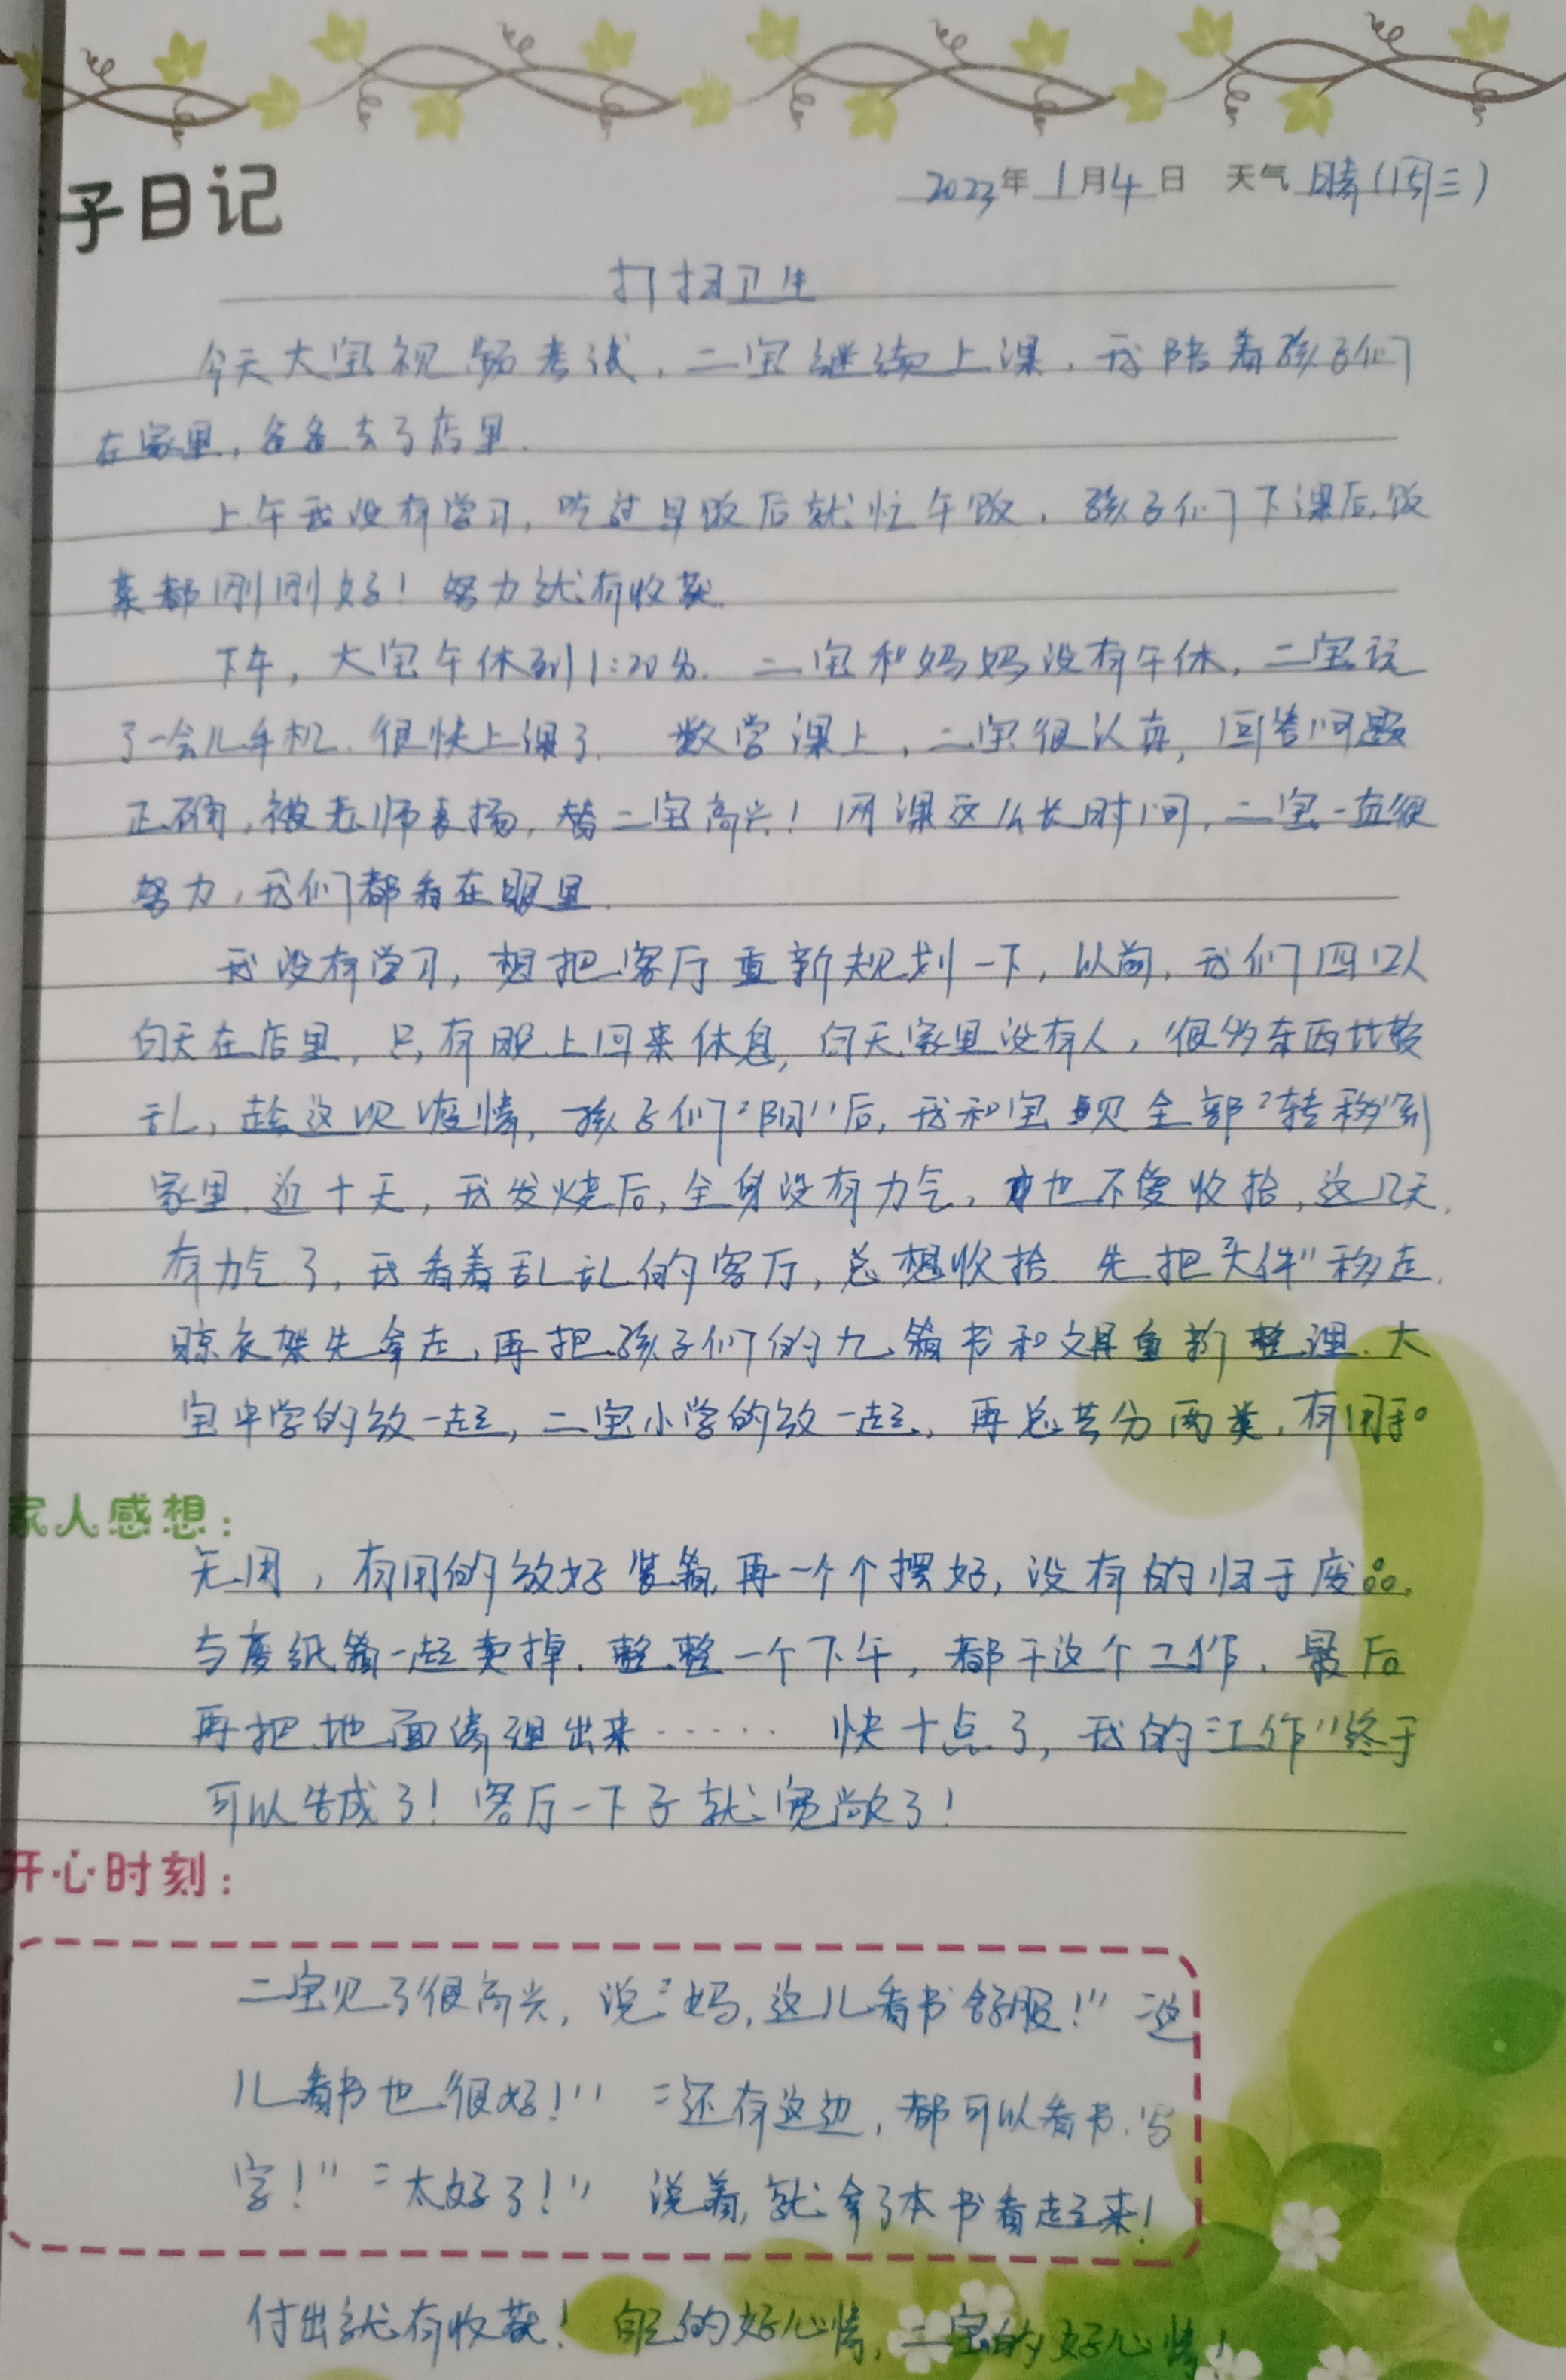 子日记
2023年1月4日 天气 晴(周三)
打扫卫生
今天大宝视频考试，二宝继续上课，我陪着孩子们
在家里，爸爸去了店里。
上午我没有学习，吃过早饭后就忙午饭，孩子们下课后，饭
菜都刚刚好！努力就有收获。
下午，大宝午休到1:20分。二宝和妈妈没有午休，二宝玩
了一会儿手机，很快上课了。数学课上，二宝很认真，回答问题
正确，被老师表扬，替二宝高兴！网课这么长时间，二宝一直很
努力，我们都看在眼里。
我没有学习，想把客厅重新规划一下，以前，我们四口人
白天在店里，只有晚上回来休息，白天家里没有人，很多东西比较
乱，趁这次疫情，孩子们“阳”后，我和宝贝全部“转移”到
家里，近十天，我发烧后，全身没有力气，也不爱收拾，这几天，
有力气了，我看着乱乱的客厅，总想收拾 先把“大件”移走，
晾衣架先拿走，再把孩子们的九箱书和文具重新整理，大
宝中学的放一起，二宝小学的放一起，再总共分两类，有用和
家人感想：
无用，有用的放好装箱，再一个个摆好，没有的归于废品，
与废纸箱一起卖掉，整整一个下午，都干这个工作，最后
再把地面清理出来…… 快十点了，我的“工作”终于
可以告成了！客厅一下子就宽敞了！
开心时刻：
二宝见了很高兴，说：“妈，这儿看书舒服！”“这
儿看书也很好！”“还有这边，都可以看书，写
字！”“太好了！”说着，就拿了本书看起来！
付出就有收获！自己的好心情，二宝的好心情！